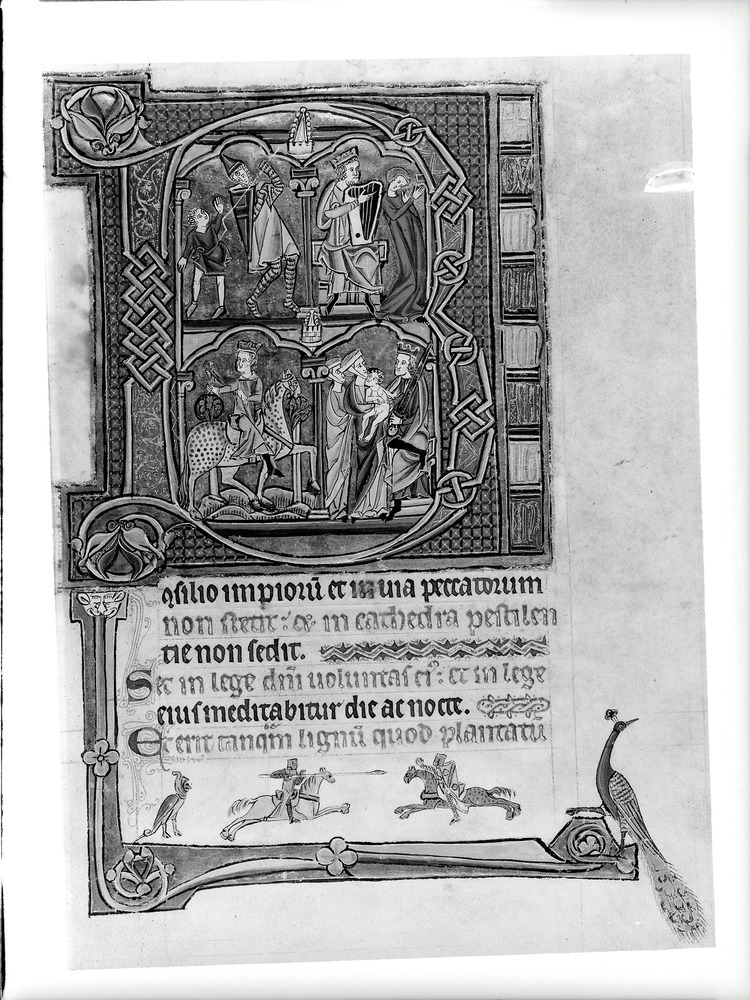 B
ꝯsilio impiorū et in uia peccatorum
non stetit: ⁊ in cathedra pestilen
tie non sedit.
Set in lege dn̄i uoluntas ei⁹: et in lege
eius meditabitur die ac nocte.
Et erit tanq̄m lignū quod plantatū